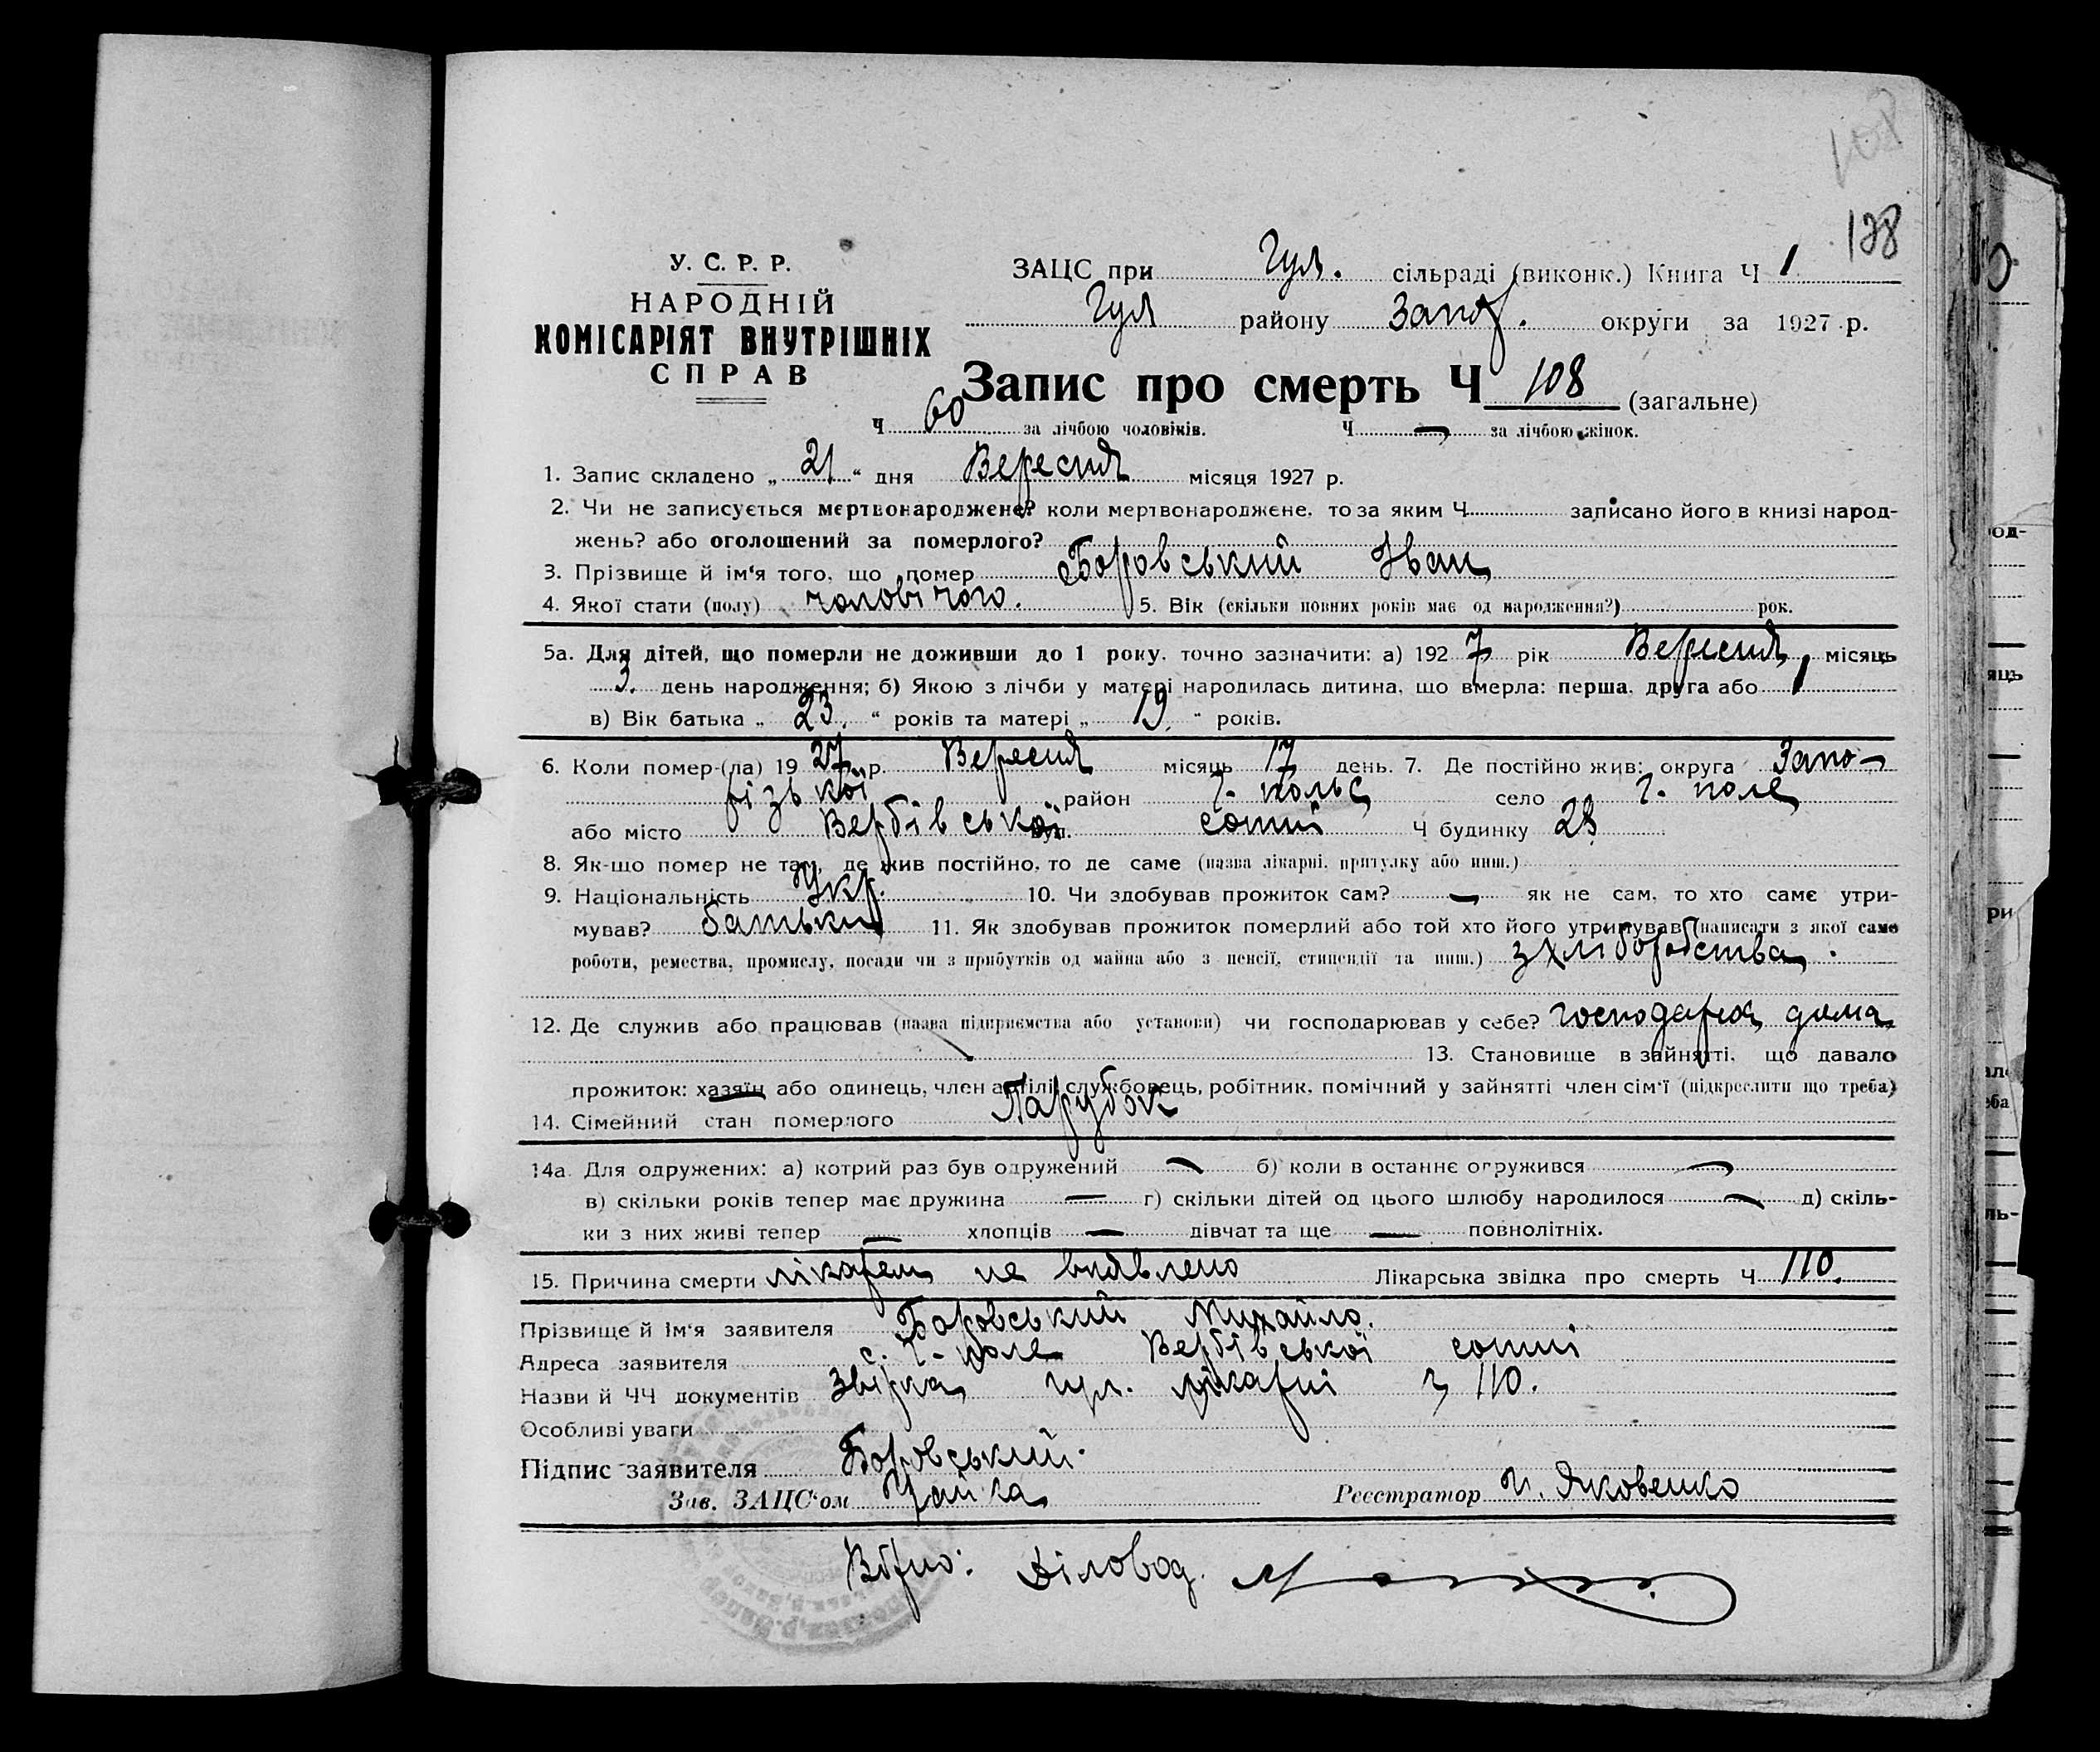 108
138
У. С. Р. Р.
НАРОДНІЙ
КОМІСАРІЯТ ВНУТРІШНІХ
СПРАВ
ЗАЦС при Гул. сільраді (виконк.) Книга Ч 1
Гул району Запор. округи за 1927 р.
Запис про смерть Ч 108 (загальне)
Ч 60 за лічбою чоловіків. Ч — за лічбою жінок.
1. Запис складено „ 21 “ дня Вересня місяця 1927 р.
2. Чи не записується мертвонароджене? коли мертвонароджене, то за яким Ч записано його в книзі народ-
жень? або оголошений за померлого?
3. Прізвище й ім‘я того, що помер Боровський Іван
4. Якої стати (полу) чоловічого. 5. Вік (скільки повних років має од народження?) рок.
5а. Для дітей, що померли не доживши до 1 року, точно зазначити: а) 192 7 рік Вересня місяць
3. день народження; б) Якою з лічби у матері народилась дитина, що вмерла: перша, друга або 1
в) Вік батька „ 23. “ років та матері „ 19. “ років.
6. Коли помер-(ла) 19 27 р. Вересня місяць 17 день. 7. Де постійно жив: округа Запо-
різької район Г. польс село Г. поле
або місто Вербівської вул. сотні Ч будинку 28
8. Як-що помер не там, де жив постійно, то де саме (назва лікарні, притулку або инш.)
9. Національність Укр. 10. Чи здобував прожиток сам? — як не сам, то хто саме утри-
мував? батьки 11. Як здобував прожиток померлий або той хто його утримував (написати з якої саме
роботи, ремества, промислу, посади чи з прибутків од майна або з пенсії, стипендії та инш.) з хліборобства.
12. Де служив або працював (назва підприємства або установи) чи господарював у себе? господарює дома
13. Становище в зайнятті, що давало
прожиток: хазяїн або одинець, член артілі, службовець, робітник, помічний у зайнятті член сім‘ї (підкреслити що треба)
14. Сімейний стан померлого Парубок
14а. Для одружених: а) котрий раз був одружений — б) коли в останнє одружився —
в) скільки років тепер має дружина — г) скільки дітей од цього шлюбу народилося — д) скіль-
ки з них живі тепер — хлопців — дівчат та ще — повнолітніх.
15. Причина смерти лікарем не виявлено Лікарська звідка про смерть Ч 110.
Прізвище й ім‘я заявителя Боровський Михайло.
Адреса заявителя с. Г-поле Вербівської сотні
Назви й ЧЧ документів Звірка гул. лікарні ч 110.
Особливі уваги
Підпис заявителя Боровський.
Зав. ЗАЦС‘ом Чайка Реєстратор И. Яковенко
Вірно: Діловод.